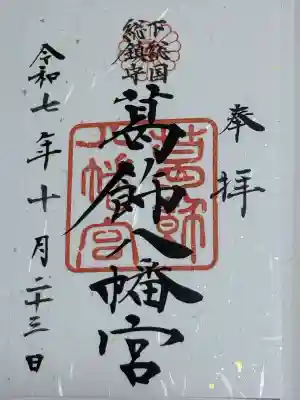 奉拝
下総国
総鎮守
葛飾八幡宮
葛飾
八幡宮
令和七年十月二十三日